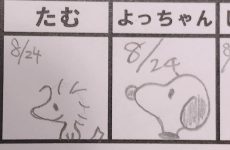 たむ
よっちゃん
8/24
8/24